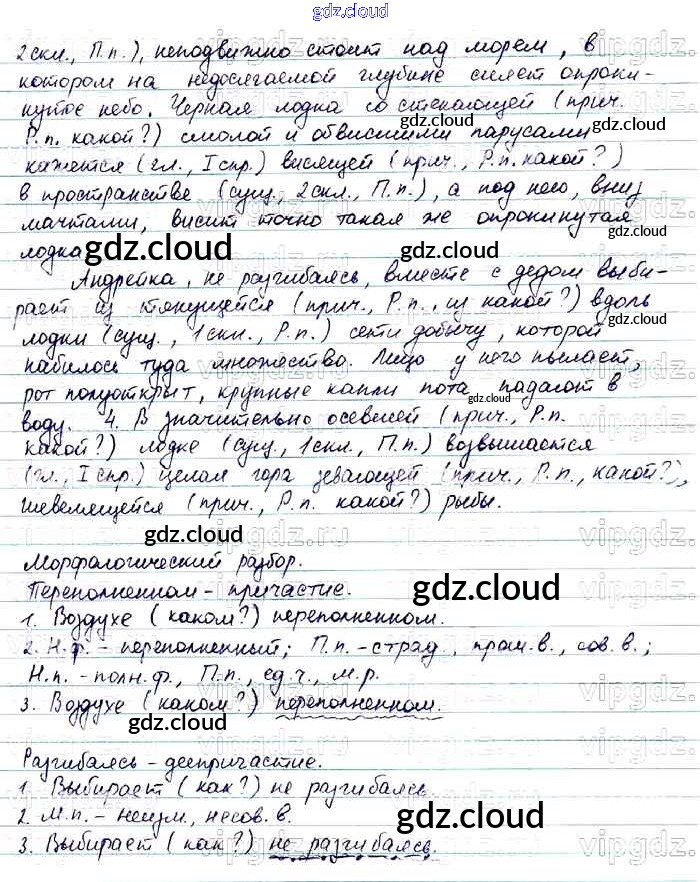 gdz.cloud
2 скл., П.п.), неподвижно стоит над морем, в
котором на недосягаемой глубине сияет опроки-
нутое небо. Черная лодка со стекающей (прич.
Р.п. какой?) смолой и обвисшими парусами
кажется (гл., I спр.) висящей (прич., Р.п. какой?)
в пространстве (сущ., 2 скл., П.п.), а под нею, вниз
мачтами, висит точно такая же опрокинутая
лодка
Андрейка, не разгибаясь, вместе с дедом выби-
рает из тянущейся (прич., Р.п., из какой?) вдоль
лодки (сущ., 1 скл., Р.п.) сети добычу, которой
набилось туда множество. Лицо у него пылает,
рот полуоткрыт, крупные капли пота падают в
воду. 4. В значительно осевшей (прич., Р.п.
какой?) лодке (сущ., 1 скл., П.п.) возвышается
(гл., I спр.) целая гора зевающей (прич., Р.п., какой?),
шевелящейся (прич., Р.п. какой?) рыбы.
Морфологический разбор.
Переполненном - причастие.
1. Воздухе (каком?) переполненном.
2. Н.ф. - переполненный; П.п. - страд., прош.в., сов.в.;
Н.п. - полн.ф., П.п., ед.ч., м.р.
3. Воздухе (каком?) переполненном.
Разгибаясь - деепричастие.
1. Выбирает (как?) не разгибаясь
2. М.п. - неизм., несов.в.
3. Выбирает (как?) не разгибаясь.